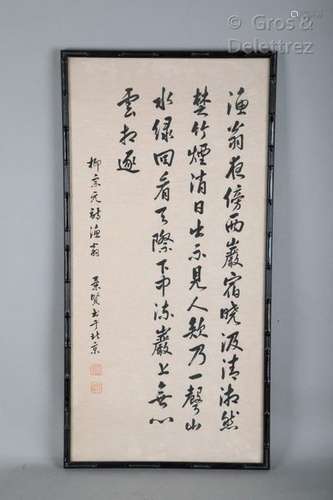 © Gros &
Delettrez
渔翁夜傍西巖宿晓汲清湘然
楚竹煙消日出不見人欸乃一聲山
水绿回看天際下中流巖上無心
雲相逐
柳宗元詩渔翁 景賢书于北京